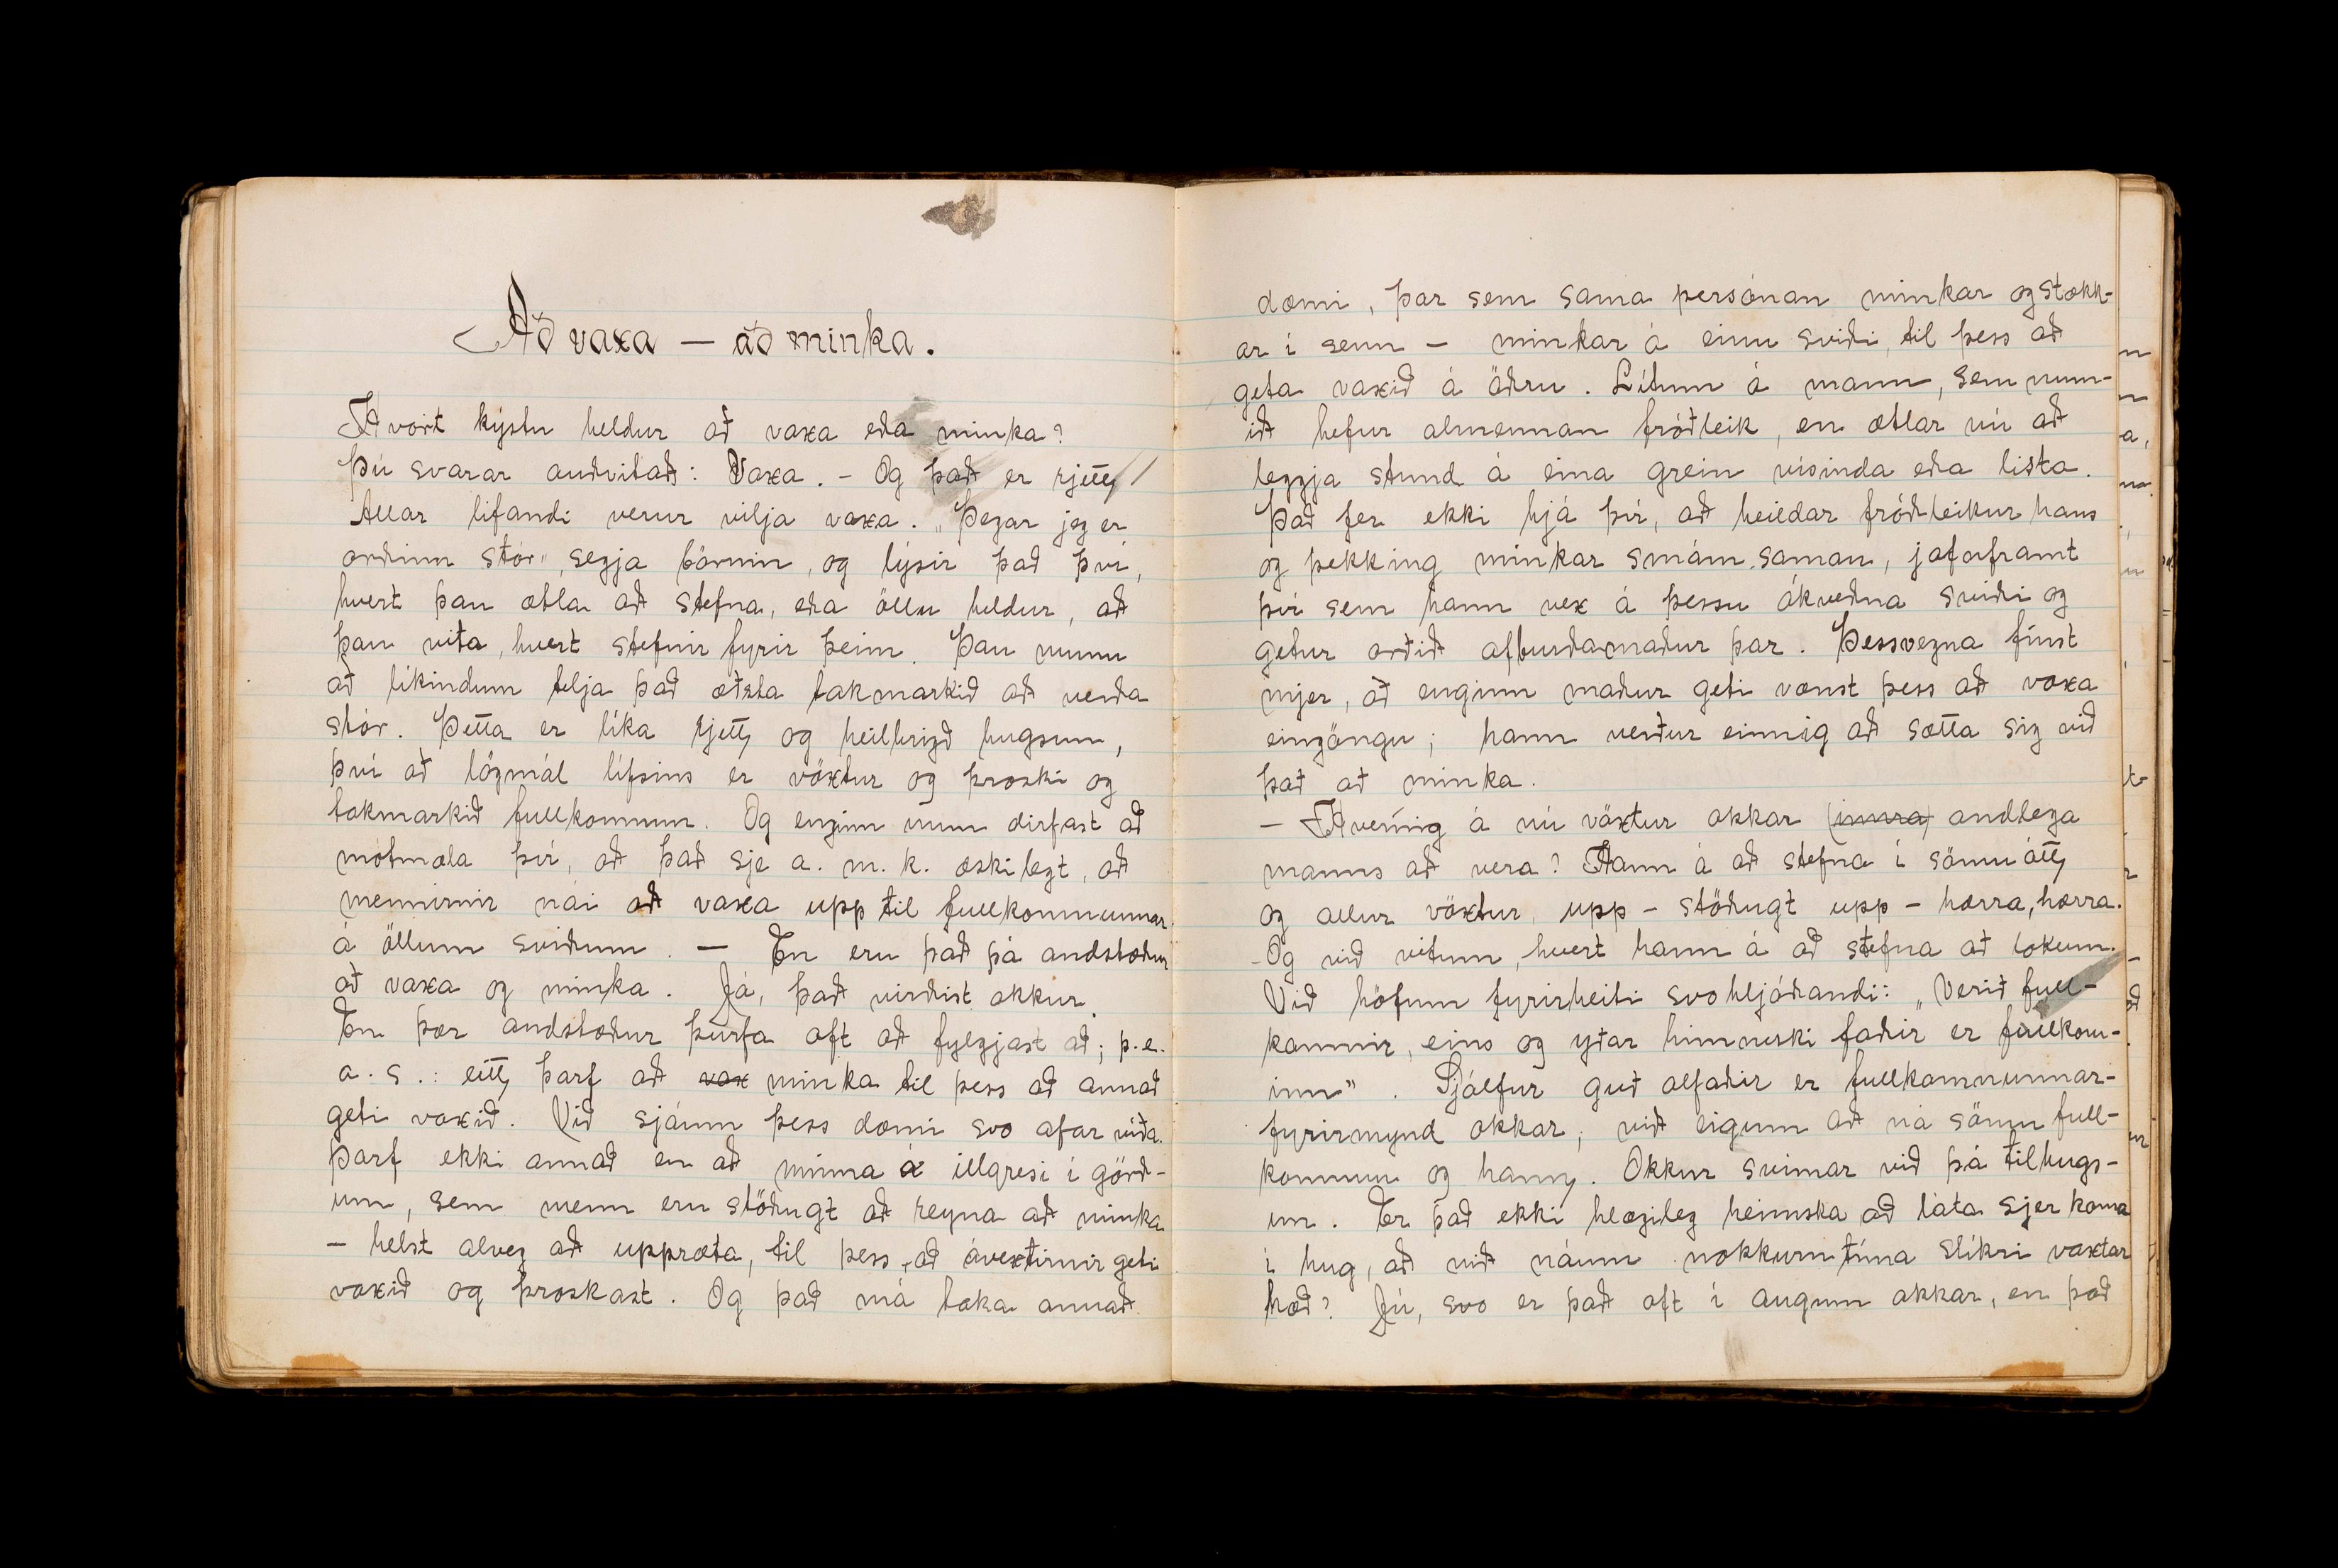 Að vaxa – að minka.
Hvort kýstu heldur að vaxa eða minka?
Þú svarar auðvitað: Vaxa. – Og það er rjett,
Allar lifandi verur vilja vaxa. „Þegar jeg er
orðinn stór", segja börnin, og lýsir það því,
hvert þau ætla að stefna, eða öllu heldur, að
þau vita, hvert stefnir fyrir þeim. Þau munu
að líkindum telja það æðsta takmarkið að verða
stór. Þetta er líka rjett og heilbrigð hugsun,
því að lögmál lífsins er vöxtur og þroski og
takmarkið fullkomnun. Og enginn mun dirfast að
mótmæla því, að það sje a. m. k. æskilegt, að
mennirnir nái að vaxa upp til fullkomnunnar
á öllum sviðum. – En eru það þá andstæður
að vaxa og minka. Já, það virðist okkur.
En þær andstæður þurfa oft að fylgjast að; þ. e.
a. s.: eitt þarf að vax minka til þess að annað
geti vaxið. Við sjáum þess dæmi svo afar víða.
Þarf ekki annað en að minna á illgresi í görð-
um, sem menn eru stöðugt að reyna að minka
– helst alveg að uppræta, til þess að ávextirnir geti
vaxið og þroskast. Og það má taka annað
dæmi, þar sem sama persónan minkar og stækk-
ar í senn – minkar á einu sviði, til þess að
geta vaxið á öðru. Lítum á mann, sem num-
ið hefur almennan fróðleik, en ætlar nú að
leggja stund á eina grein vísinda eða lista.
Það fer ekki hjá því, að heildar fróðleikur hans
og þekking minkar smám saman, jafnframt
því sem hann vex á þessu ákveðna sviði og
getur orðið afburðamaður þar. Þessvegna finst
mjer, að enginn maður geti vænst þess að vaxa
eingöngu; hann verður einnig að sætta sig við
það að minka.
– Hvernig á nú vöxtur okkar (innra) andlega
manns að vera? Hann á að stefna í sömu átt
og allur vöxtur, upp – stöðugt upp – hærra, hærra.
Og við vitum, hvert hann á að stefna að lokum.
Við höfum fyrirheiti svo hljóðandi: „Verið full-
komnir, eins og yðar himneski faðir er fullkom-
inn". Sjálfur guð alfaðir er fullkomnunnar-
fyrirmynd okkar; við eigum að ná sömu full-
komnun og hann. Okkur svimar við þá tilhugs-
un. Er það ekki hlægileg heimska að láta sjer koma
í hug, að við náum nokkurn tíma slíkri vaxtar
hæð? Jú, svo er það oft í augum okkar, en það